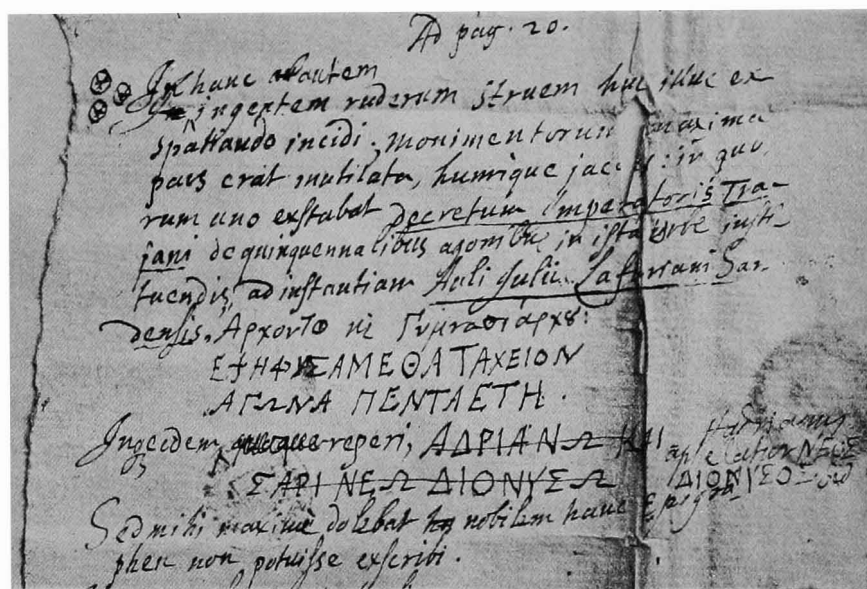 Ad pag. 20.
In hanc autem
ingentem ruderum struem huc illuc ex
spatiando incidi; monimentorum maxima
pars erat mutilata, humique jacens: in quo
rum uno exstabat decretum Imperatoris Tra-
jani de quinquennalibus agonibus in ista urbe insti-
tuendis, ad instantiam Auli Julii Safariani Sar-
densis, Ἀρχοντ@ κὶ Γυμνασιάρχου:
ΕΨΗΦΙΣΑΜΕΘΑ ΤΑΧΕΙΟΝ
ΑΓΩΝΑ ΠΕΝΤΑΕΤΗ.
In eodem quoque reperi, ΑΔΡΙΑΝΩ ΚΑΙ
Hadrianus
ap ΝΕΟΣ
ΣΑΡΙ ΝΕΩ ΔΙΟΝΥΣΩ
ΔΙΟΝΥΣΟΣ
Sed mihi maxime dolebat nobilem hanc Epigra
phen non potuisse exscribi.